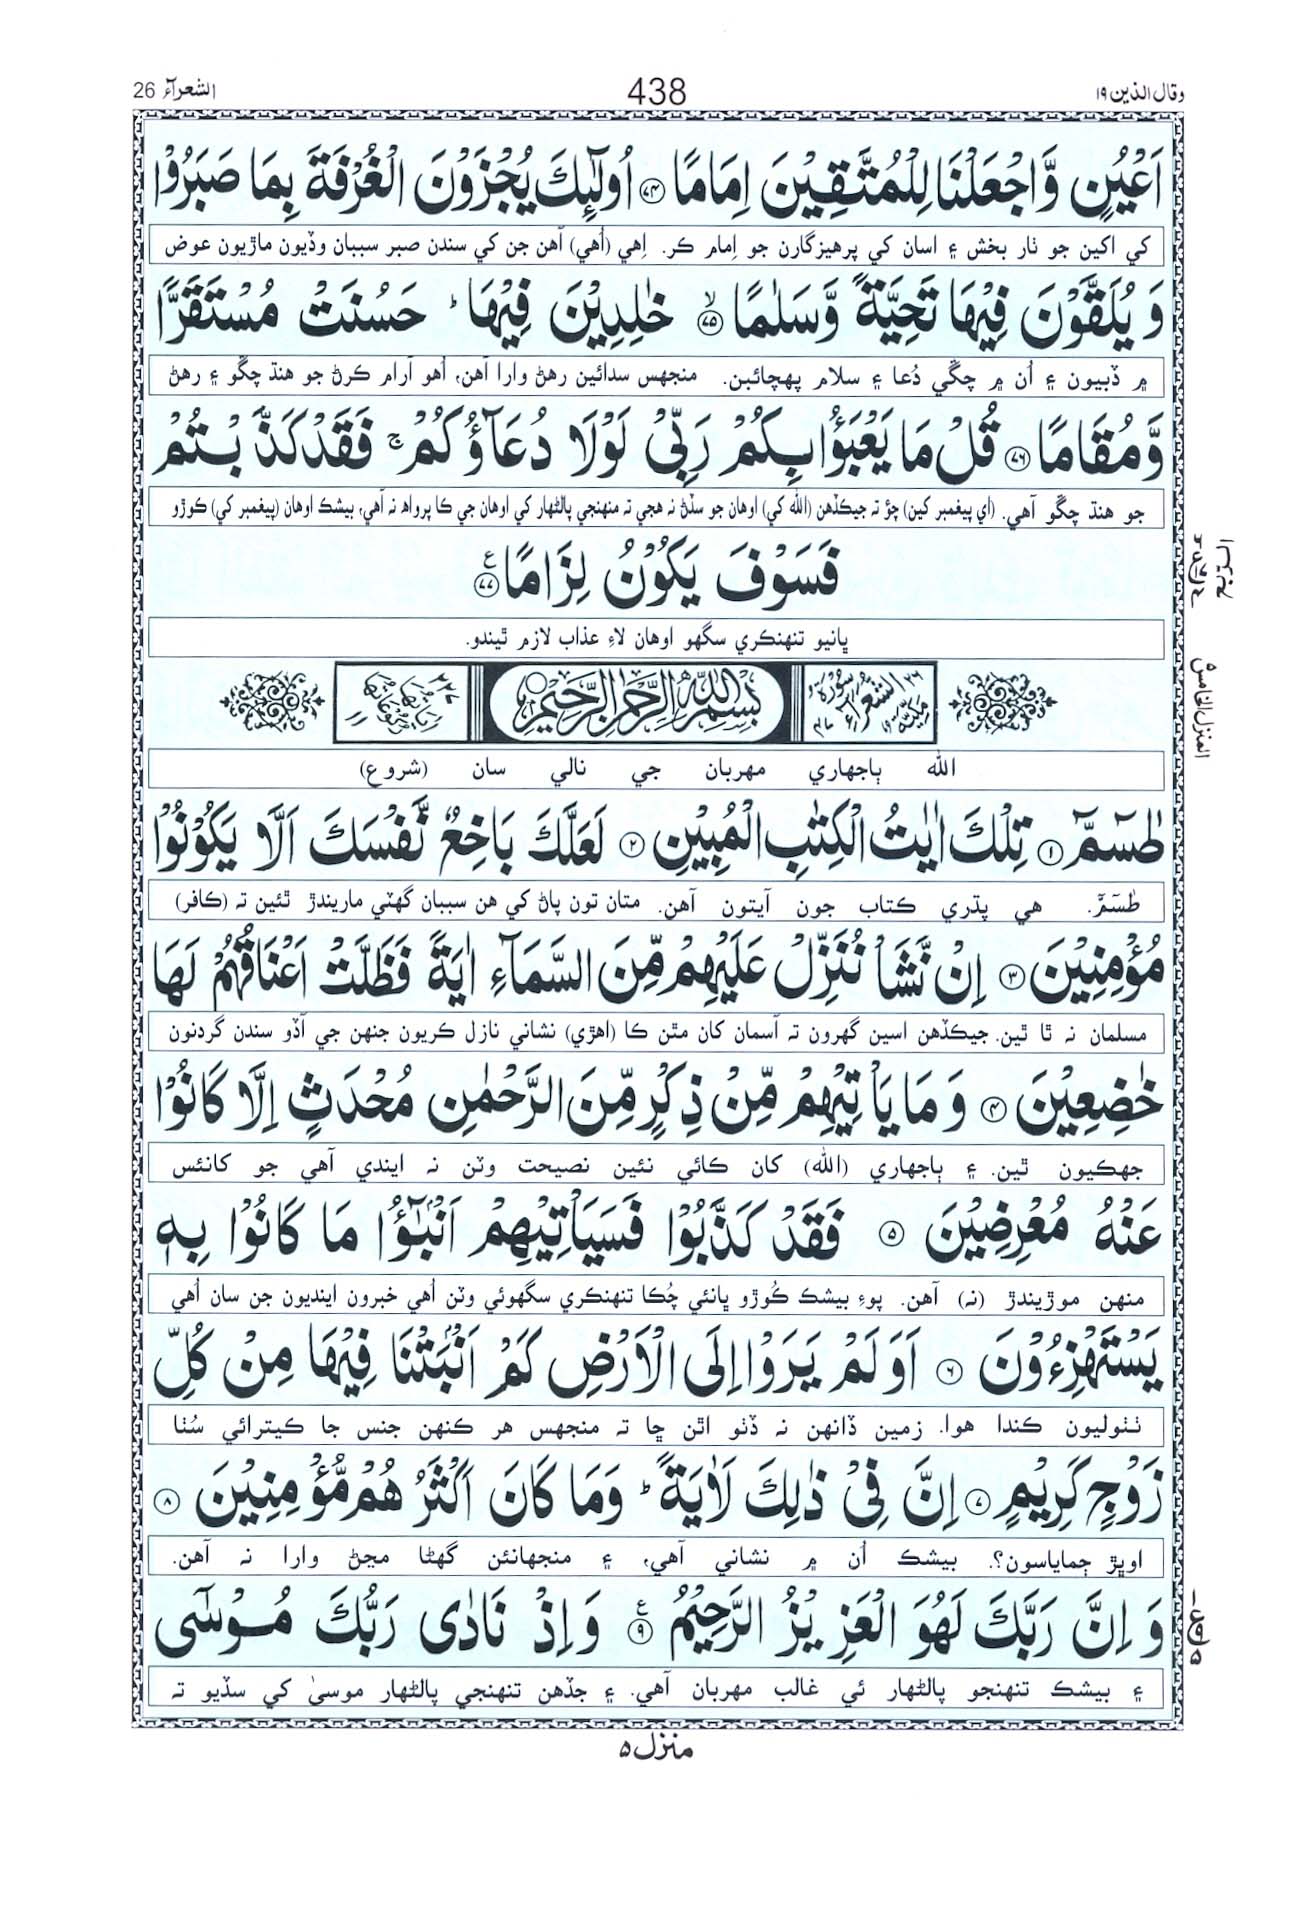 وقال الذين ١٩
438
الشعرآء 26
اَعْيُنٍ وَّاجْعَلْنَا لِلْمُتَّقِيْنَ اِمَامًا ﴿۷۴﴾ اُولٰٓئِكَ يُجْزَوْنَ الْغُرْفَةَ بِمَا صَبَرُوْا
کي اکين جو ٺار بخش ۽ اسان کي پرهيزگارن جو اِمام ڪر. اِهي (اُهي) آهن جن کي سندن صبر سببان وڏيون ماڙيون عوض
وَيُلَقَّوْنَ فِيْهَا تَحِيَّةً وَّسَلٰمًا ﴿۷۵﴾ۙ خٰلِدِيْنَ فِيْهَا ؕ حَسُنَتْ مُسْتَقَرًّا
۾ ڏبيون ۽ اُن ۾ چڱي دُعا ۽ سلام پهچائبن. منجهس سدائين رهڻ وارا آهن، اُهو آرام ڪرڻ جو هنڌ چڱو ۽ رهڻ
وَّمُقَامًا ﴿۷۶﴾ قُلْ مَا يَعْبَؤُا بِكُمْ رَبِّيْ لَوْلَا دُعَآؤُكُمْ ۚ فَقَدْ كَذَّبْتُمْ
جو هنڌ چڱو آهي. (اي پيغمبر کين) چؤ ته جيڪڏهن (الله کي) اوهان جو سڏڻ نہ هجي تہ منهنجي پالڻهار کي اوهان جي ڪا پرواھ نہ آهي، بيشڪ اوهان (پيغمبر کي) ڪوڙو
فَسَوْفَ يَكُوْنُ لِزَامًا ﴿۷۷﴾ع
ڀانيو تنهنڪري سگهو اوهان لاءِ عذاب لازم ٿيندو.
المنزل الخامس
۲۶ سورة الشعرآء مكية ۴۷
بسم الله الرحمن الرحيم
اياتها ۲۲۷ ركوعاتها ۱۱
الله ٻاجهاري مهربان جي نالي سان (شروع)
طٰسٓمّٓ ﴿۱﴾ تِلْكَ اٰيٰتُ الْكِتٰبِ الْمُبِيْنِ ﴿۲﴾ لَعَلَّكَ بَاخِعٌ نَّفْسَكَ اَلَّا يَكُوْنُوْا
طٰسٓمّٓ. هي پڌري ڪتاب جون آيتون آهن. متان تون پاڻ کي هن سببان گهٽي ماريندڙ ٿئين ته (ڪافر)
مُؤْمِنِيْنَ ﴿۳﴾ اِنْ نَّشَاْ نُنَزِّلْ عَلَيْهِمْ مِّنَ السَّمَآءِ اٰيَةً فَظَلَّتْ اَعْنَاقُهُمْ لَهَا
مسلمان نہ ٿا ٿين. جيڪڏهن اسين گهرون تہ آسمان کان مٿن ڪا (اهڙي) نشاني نازل ڪريون جنهن جي آڏو سندن گردنون
خٰضِعِيْنَ ﴿۴﴾ وَمَا يَاْتِيْهِمْ مِّنْ ذِكْرٍ مِّنَ الرَّحْمٰنِ مُحْدَثٍ اِلَّا كَانُوْا
جهڪيون ٿين. ۽ ٻاجهاري (الله) کان ڪائي نئين نصيحت وٽن نہ ايندي آهي جو کانئس
عَنْهُ مُعْرِضِيْنَ ﴿۵﴾ فَقَدْ كَذَّبُوْا فَسَيَاْتِيْهِمْ اَنْۢبٰٓؤُا مَا كَانُوْا بِهٖ
منهن موڙيندڙ (نہ) آهن. پوءِ بيشڪ ڪُوڙو ڀانئي چُڪا تنهنڪري سگهوئي وٽن اُهي خبرون اينديون جن سان اُهي
يَسْتَهْزِءُوْنَ ﴿۶﴾ اَوَلَمْ يَرَوْا اِلَى الْاَرْضِ كَمْ اَنْۢبَتْنَا فِيْهَا مِنْ كُلِّ
ٺٺوليون ڪندا هوا. زمين ڏانهن نہ ڏٺو اٿن ڇا تہ منجهس هر ڪنهن جنس جا ڪيترائي سُٺا
زَوْجٍ كَرِيْمٍ ﴿۷﴾ اِنَّ فِيْ ذٰلِكَ لَاٰيَةً ؕ وَمَا كَانَ اَكْثَرُهُمْ مُّؤْمِنِيْنَ ﴿۸﴾
اوڀڙ ڄماياسون؟. بيشڪ اُن ۾ نشاني آهي، ۽ منجهانئن گهڻا مڃڻ وارا نہ آهن.
وَاِنَّ رَبَّكَ لَهُوَ الْعَزِيْزُ الرَّحِيْمُ ﴿۹﴾ع وَاِذْ نَادٰى رَبُّكَ مُوْسٰٓى
۽ بيشڪ تنهنجو پالڻهار ئي غالب مهربان آهي. ۽ جڏهن تنهنجي پالڻهار موسيٰ کي سڏيو تہ
منزل ۵